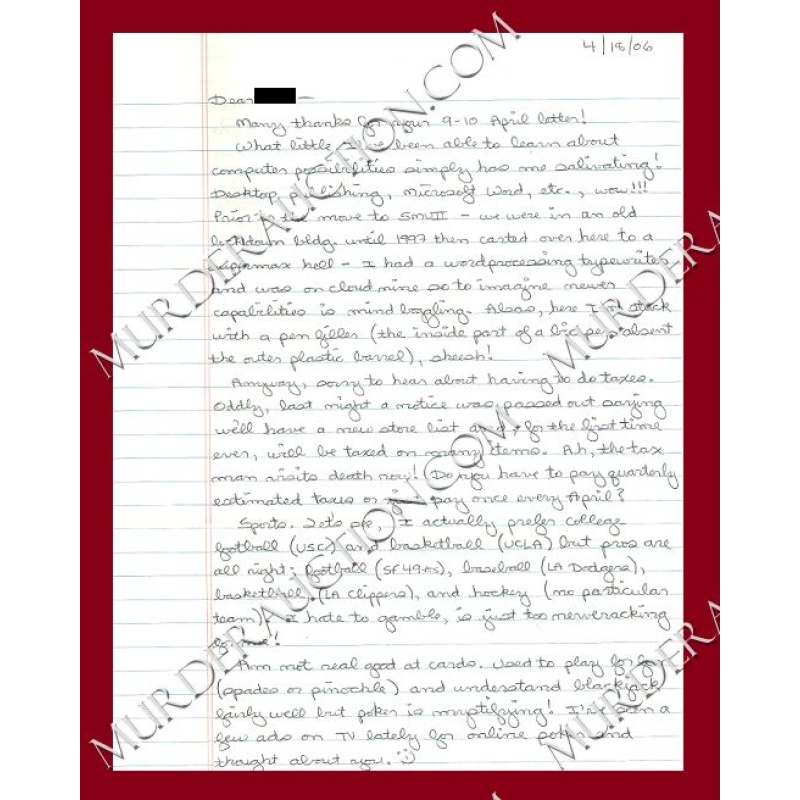 4/18/06
Dear —
Many thanks for your 9-10 April letter!
What little I've been able to learn about
computer possibilities simply has me salivating!
Desktop publishing, Microsoft Word, etc., wow!!!
Prior to the move to SMUII — we were in an old
lockdown bldg. until 1997 then carted over here to a
supermax hell — I had a wordprocessing typewriter
and was on cloud nine so to imagine newer
capabilities is mind boggling. Alsas, here I'm stuck
with a pen filler (the inside part of a bic pen absent
the outer plastic barrel), sheesh!
Anyway, sorry to hear about having to do taxes.
Oddly, last night a notice was passed out saying
we'll have a new store list and, for the first time
ever, will be taxed on many items. Ah, the tax
man visits death row! (Do you have to pay quarterly
estimated taxes or pay once every April?
Sports. Let's see, I actually prefer college
football (USC) and basketball (UCLA) but pros are
all right: football (SF 49ers), baseball (LA Dodgers),
basketball (LA Clippers), and hockey (no particular
team). I hate to gamble, is just too nerveracking
for me!
Am not real good at cards. Used to play for fun
(spades or pinochle) and understand blackjack
fairly well but poker is mystifying! I've seen a
few ads on TV lately for online poker and
thought about you.
MURDERAUCTION.COM
MURDERAUCTION.COM
MURDERA
MURDERA